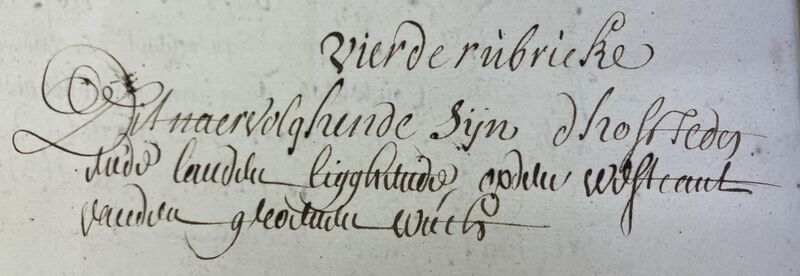 vierde rúbricke
Dit naervolghende sijn dhofsteden
ende landen ligghende opden westcant
vanden grooten wech